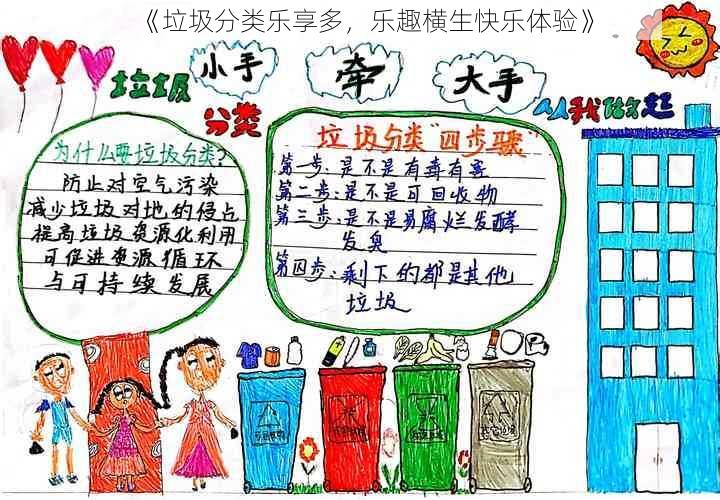 《垃圾分类乐享多，乐趣横生快乐体验》
小手 牵 大手
垃圾
分类
从我做起
为什么要垃圾分类？
防止对空气污染
减少垃圾对地的侵占
提高垃圾资源化利用
可促进资源循环
与可持续发展
垃圾分类"四步骤"
第一步：是不是有毒有害
第二步：是不是可回收物
第三步：是不是易腐烂发酵
发臭
第四步：剩下的都是其他
垃圾